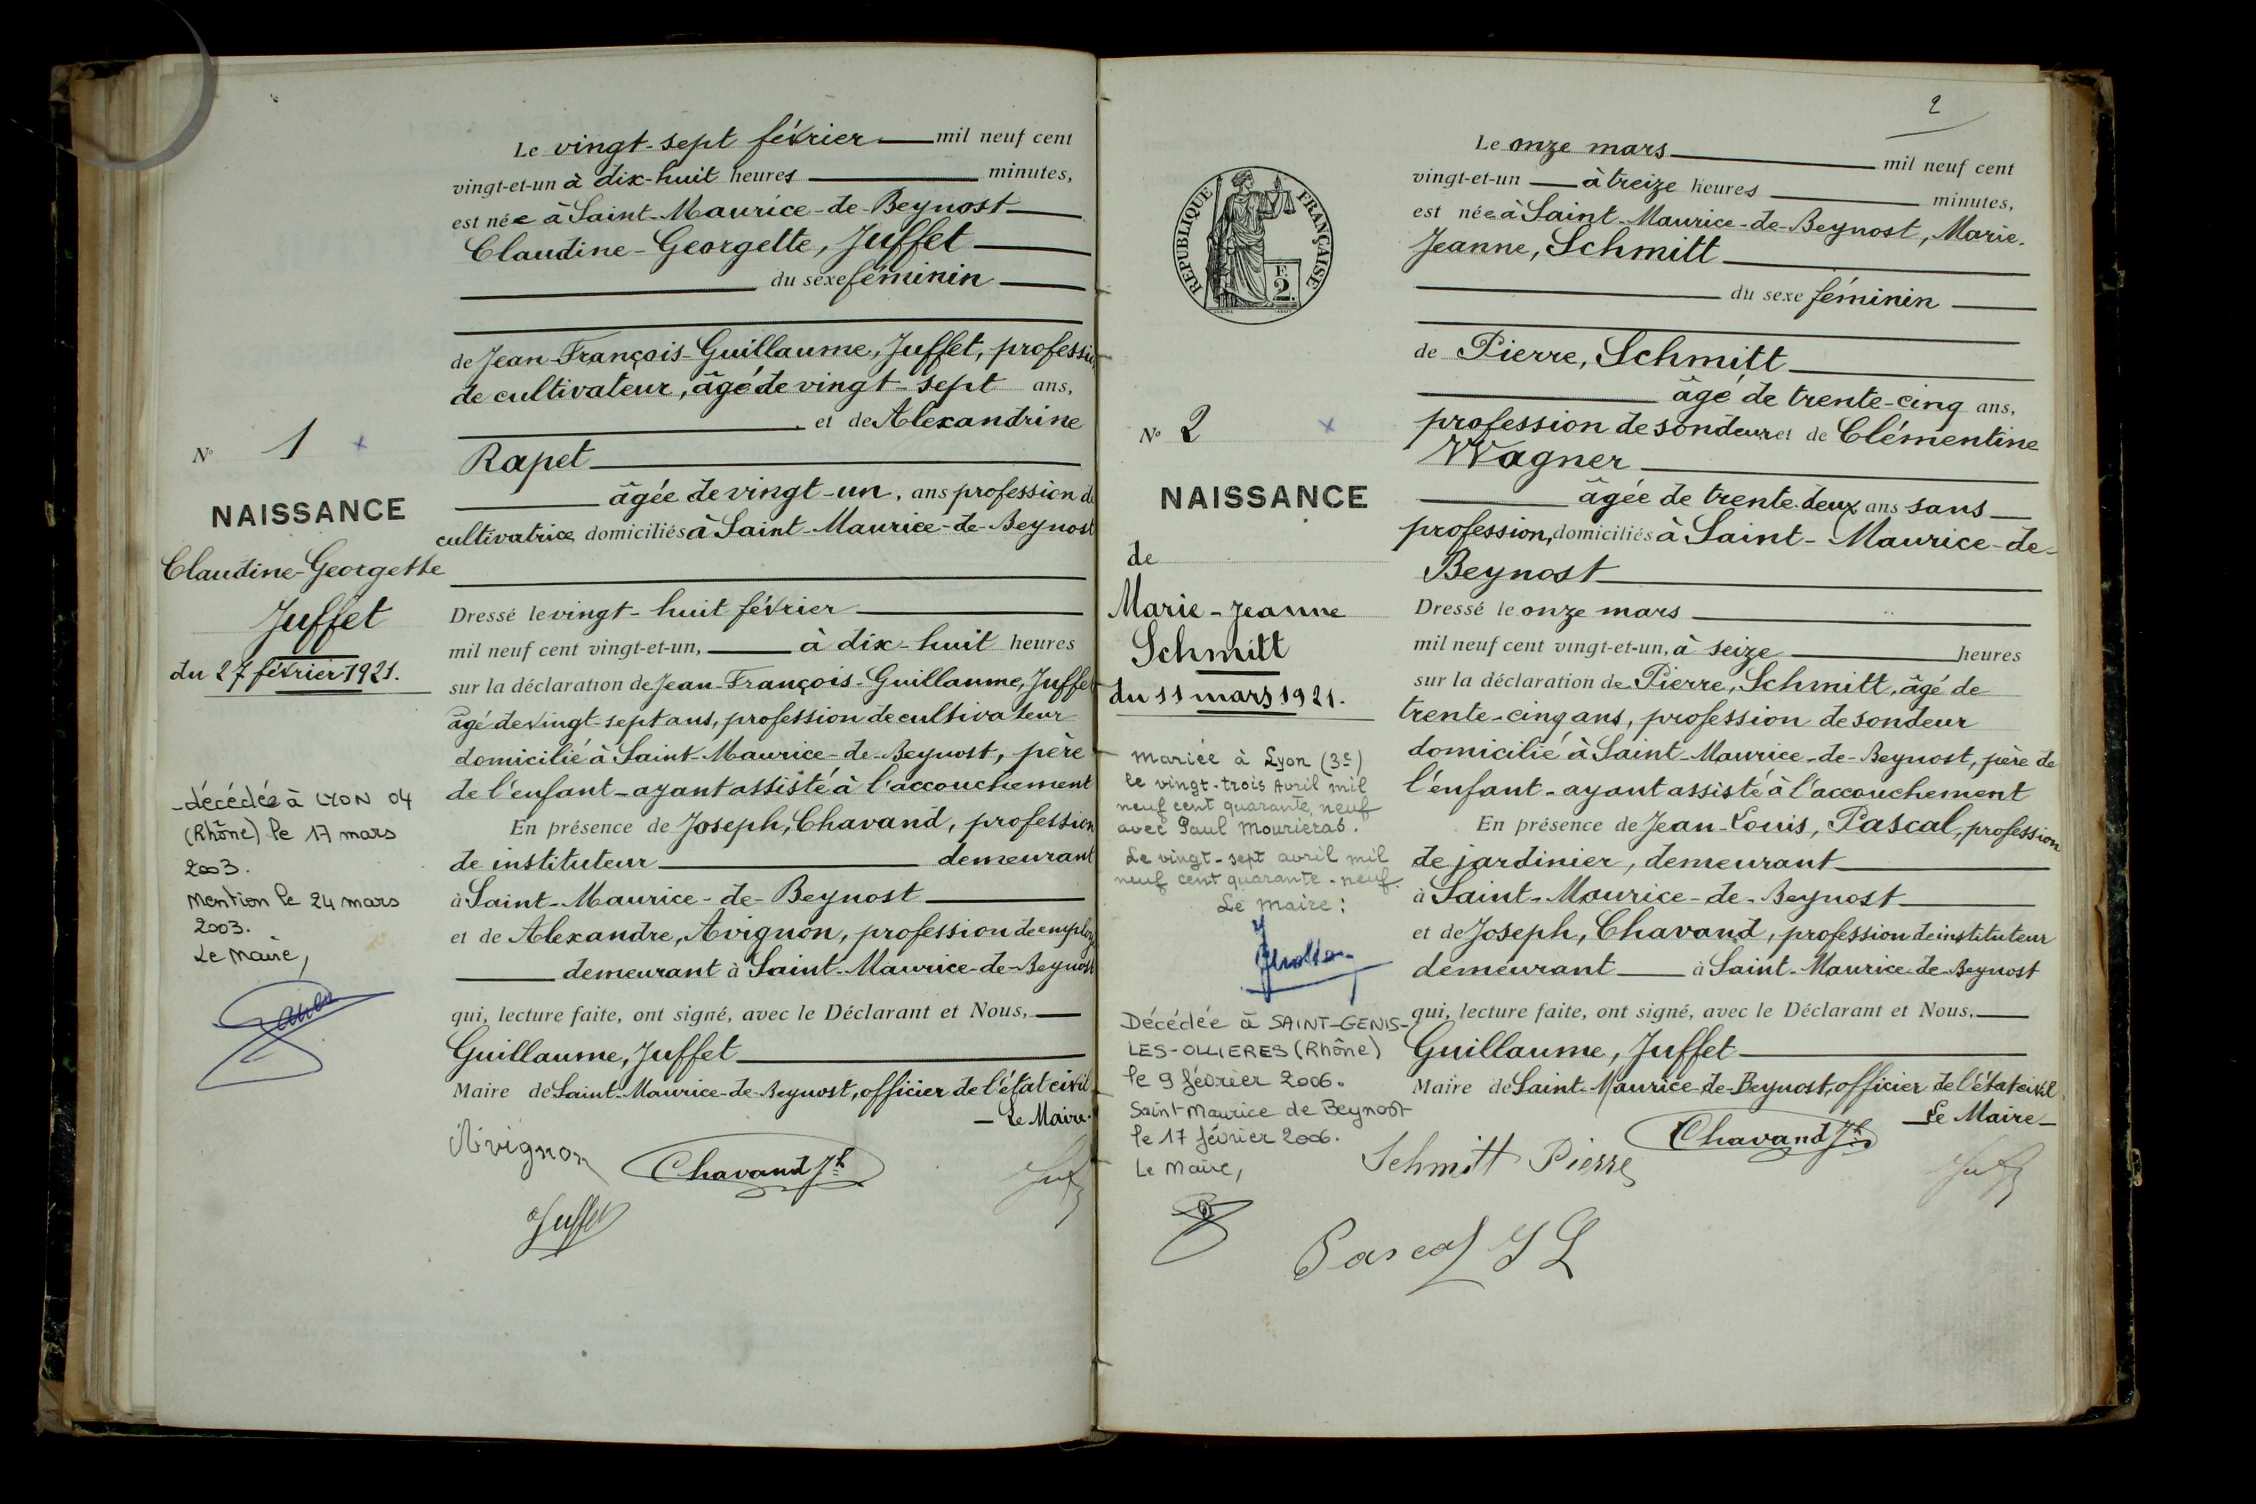 Le vingt-sept février mil neuf cent
vingt-et-un à dix-huit heures minutes,
est née à Saint-Maurice-de-Beynost
Claudine-Georgette, Juffet
du sexe féminin
de Jean-François-Guillaume, Juffet, profession
de cultivateur, âgé de vingt-sept ans,
et de Alexandrine
Rapet
âgée de vingt-un, ans profession de
cultivatrice domiciliés à Saint-Maurice-de-Beynost
Dressé le vingt-huit février
mil neuf cent vingt-et-un, à dix-huit heures
sur la déclaration de Jean-François-Guillaume, Juffet
âgé de vingt-sept ans, profession de cultivateur
domicilié à Saint-Maurice-de-Beynost, père
de l'enfant-ayant assisté à l'accouchement
En présence de Joseph, Chavand, profession
de instituteur demeurant
à Saint-Maurice-de-Beynost
et de Alexandre, Avignon, profession de employé
demeurant à Saint-Maurice-de-Beynost
qui, lecture faite, ont signé, avec le Déclarant et Nous,
Guillaume, Juffet
Maire de Saint-Maurice-de-Beynost, officier de l'état civil
Le Maire.
Avignon
Chavand Jh
Juffet
N° 1
NAISSANCE
Claudine-Georgette
Juffet
du 27 février 1921.
décédée à LYON 04
(Rhône) le 17 mars
2003.
Mention le 24 mars
2003.
Le Maire,
2
RÉPUBLIQUE FRANÇAISE
F.
2
N° 2
NAISSANCE
de
Marie-Jeanne
Schmitt
du 11 mars 1921.
Mariée à Lyon (3e)
le vingt-trois Avril mil
neuf cent quarante neuf
avec Paul Mourieras.
Le vingt-sept avril mil
neuf cent quarante-neuf.
Le Maire :
Décédée à SAINT-GENIS-
LES-OLLIERES (Rhône)
le 9 février 2006.
Saint Maurice de Beynost
le 17 février 2006.
Le Maire,
Le onze mars mil neuf cent
vingt-et-un à treize heures minutes,
est née à Saint-Maurice-de-Beynost, Marie-
Jeanne, Schmitt
du sexe féminin
de Pierre, Schmitt
âgé de trente-cinq ans,
profession de sondeur et de Clémentine
Wagner
âgée de trente-deux ans sans
profession, domiciliés à Saint-Maurice-de-
Beynost
Dressé le onze mars
mil neuf cent vingt-et-un, à seize heures
sur la déclaration de Pierre, Schmitt, âgé de
trente-cinq ans, profession de sondeur
domicilié à Saint-Maurice-de-Beynost, père de
l'enfant-ayant assisté à l'accouchement
En présence de Jean-Louis, Pascal, profession
de jardinier, demeurant
à Saint-Maurice-de-Beynost
et de Joseph, Chavand, profession de instituteur
demeurant à Saint-Maurice-de-Beynost
qui, lecture faite, ont signé, avec le Déclarant et Nous,
Guillaume, Juffet
Maire de Saint-Maurice-de-Beynost, officier de l'état civil
Le Maire
Chavand Jh
Schmitt Pierre
Pascal J L